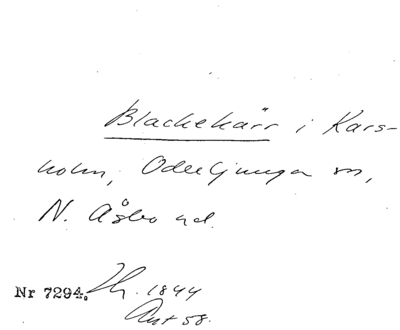 Blackekärr i Kars-
holm, Oderljunga sn,
N. Åsbo hd.
Nr 7294. 1844
Ant 58.